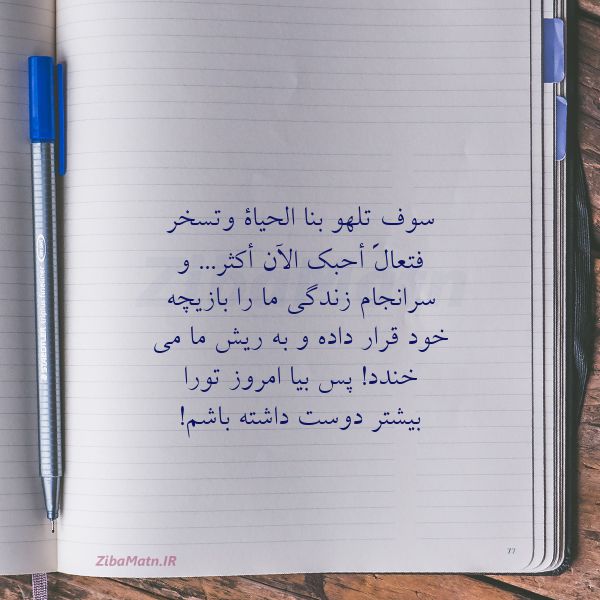 سوف تلهو بنا الحیاهٔ وتسخر
فتعالَ أحبک الآن أکثر... و
سرانجام زندگی ما را بازیچه
خود قرار داده و به ریش ما می
خندد! پس بیا امروز تورا
بیشتر دوست داشته باشم!
ZibaMatn.IR